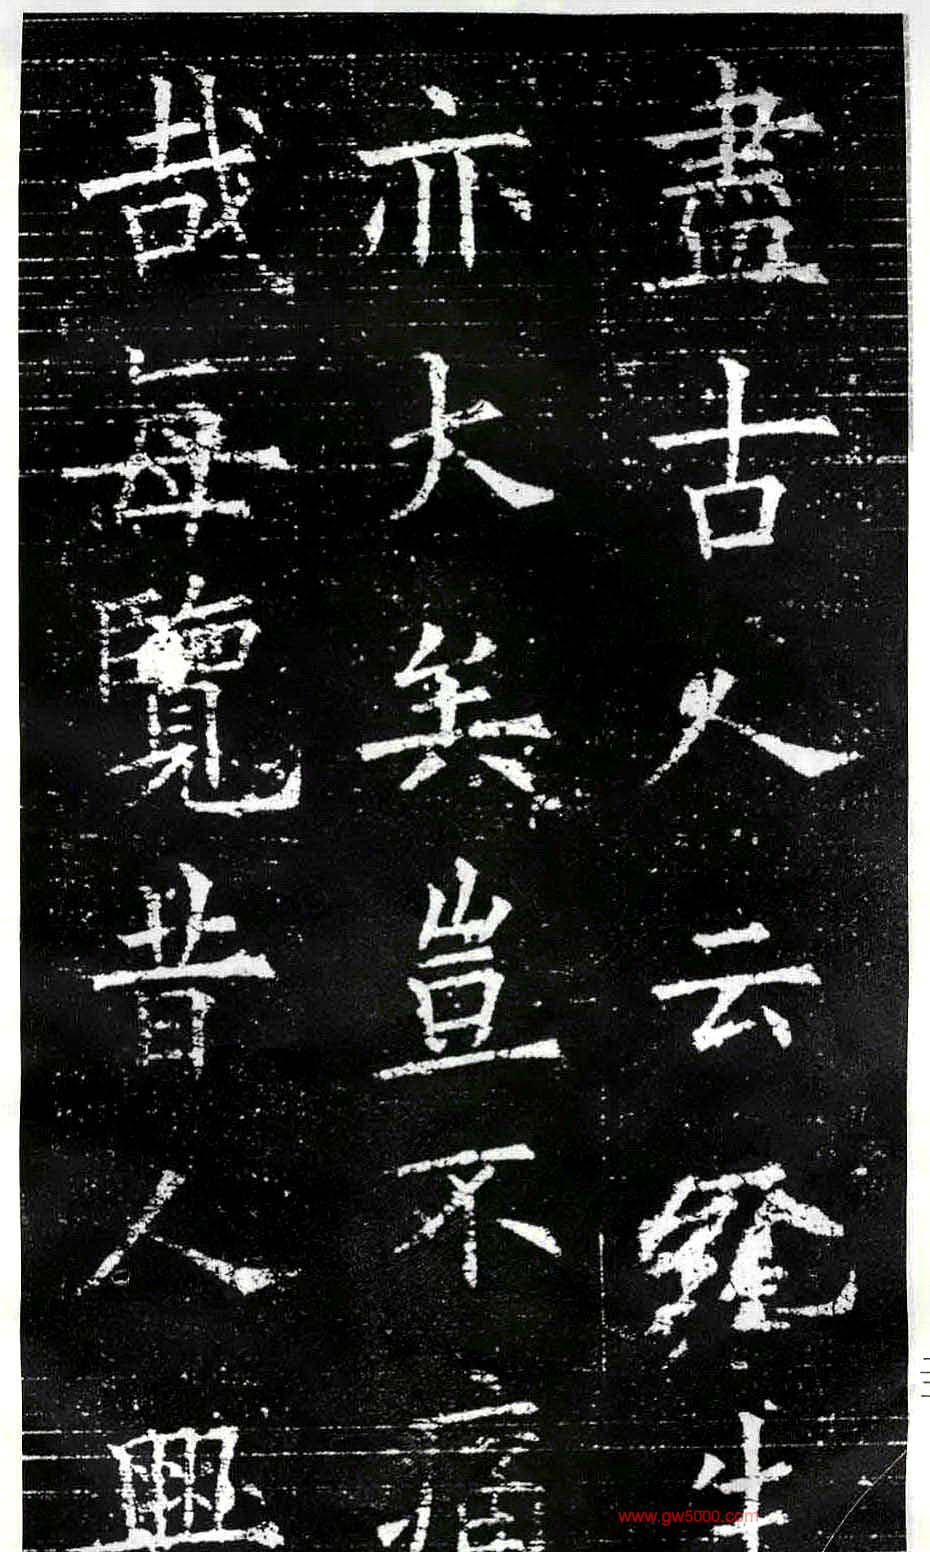 盡古人云死生
亦大矣豈不痛
哉每覽昔人興
www.gw5000.com